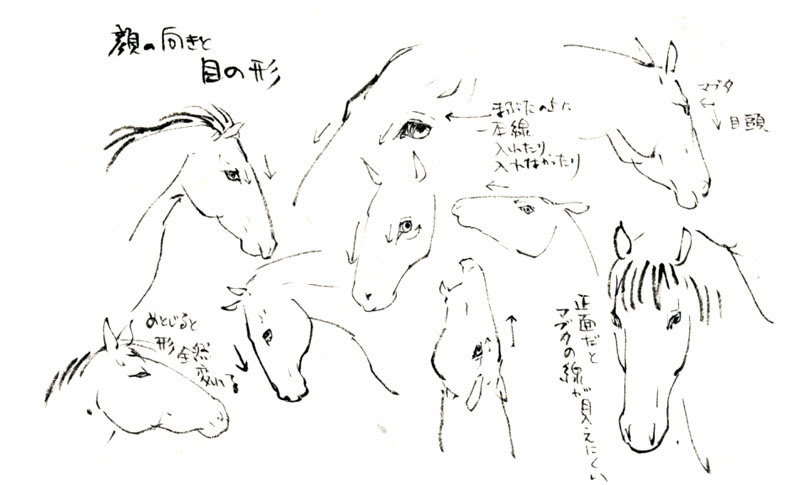 顔の向きと
目の形
まぶたの上に
一本線
入れたり
入れなかったり
マブタ
目頭
めとじると
形全然
変わってる
正面だと
マブタの線が見えにくい